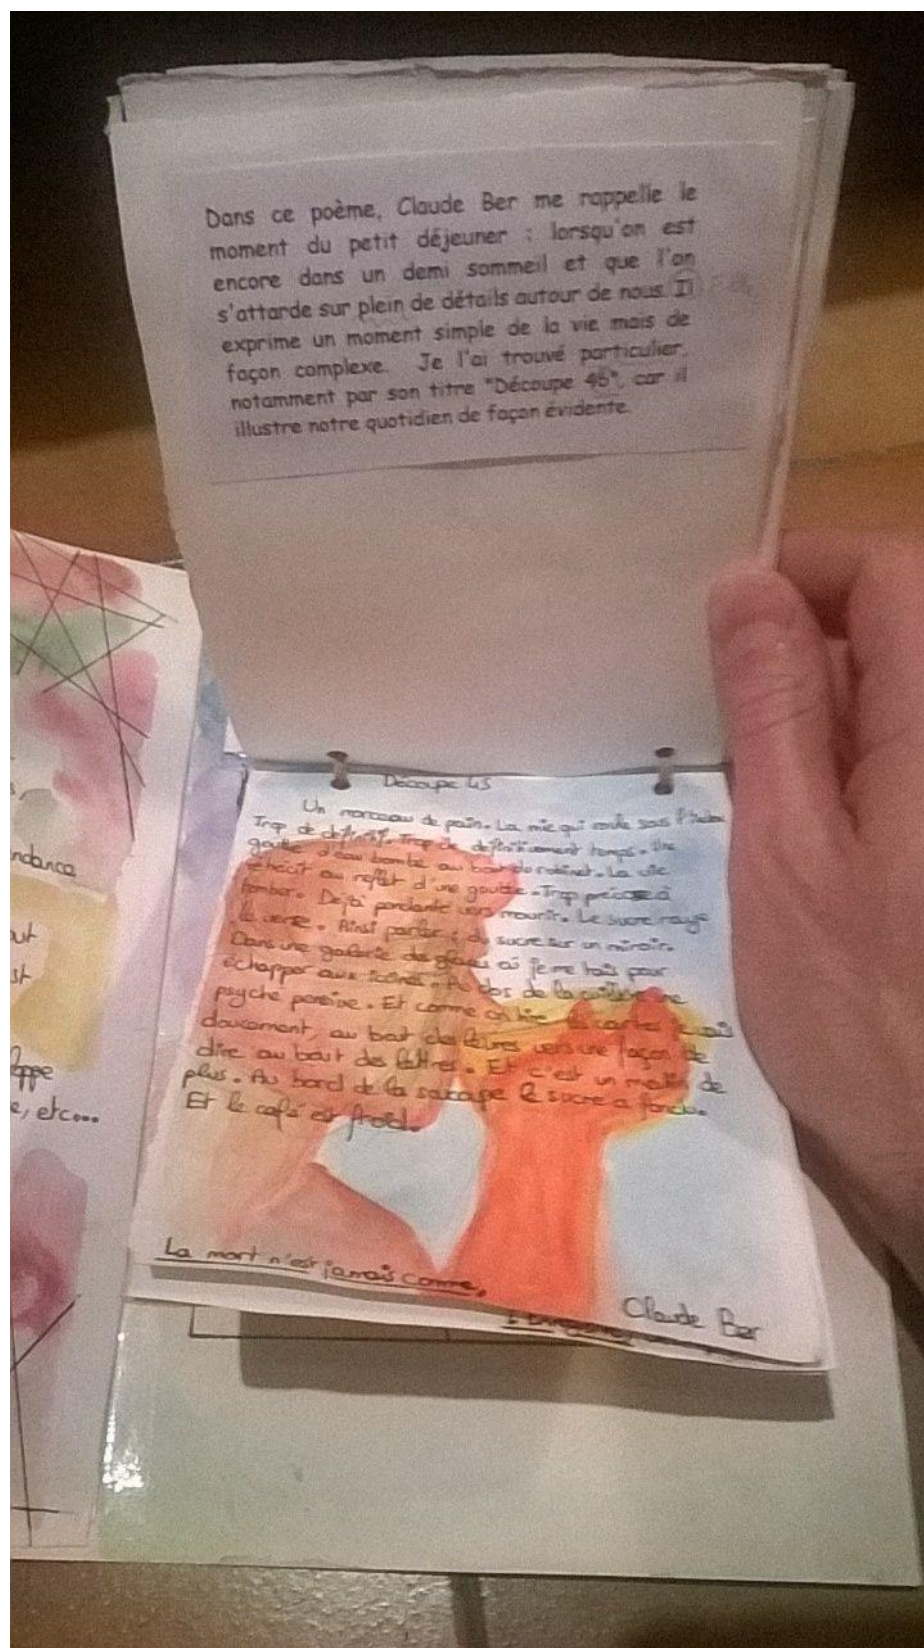 Dans ce poème, Claude Ber me rappelle le
moment du petit déjeuner : lorsqu'on est
encore dans un demi sommeil et que l'on
s'attarde sur plein de détails autour de nous. Il
exprime un moment simple de la vie mais de
façon complexe. Je l'ai trouvé particulier,
notamment par son titre "Découpe 45", car il
illustre notre quotidien de façon évidente.
Découpe 45
Un morceau de pain. La mie qui roule sous
Trop de définitif. Trop de définitivement temps. Une
goutte d'eau bombe au bout du robinet. La vie
rétrécit au reflet d'une goutte. Trop précise à
tomber. Déjà pendante vers mourir. Le sucre raye
le verre. Ainsi parler : du sucre sur un miroir.
Dans une galerie des glaces où je me tais pour
échapper aux icônes. Au dos de la cuillère une
psyché pensive. Et comme on tire les cartes je vais
doucement, au bout des lèvres vers une façon de
dire au bout des lettres. Et c'est un matin de
plus. Au bord de la soucoupe le sucre a fondu.
Et le café est froid.
La mort n'est jamais comme,
Claude Ber
ndance
ut
st
oppe
e, etc...